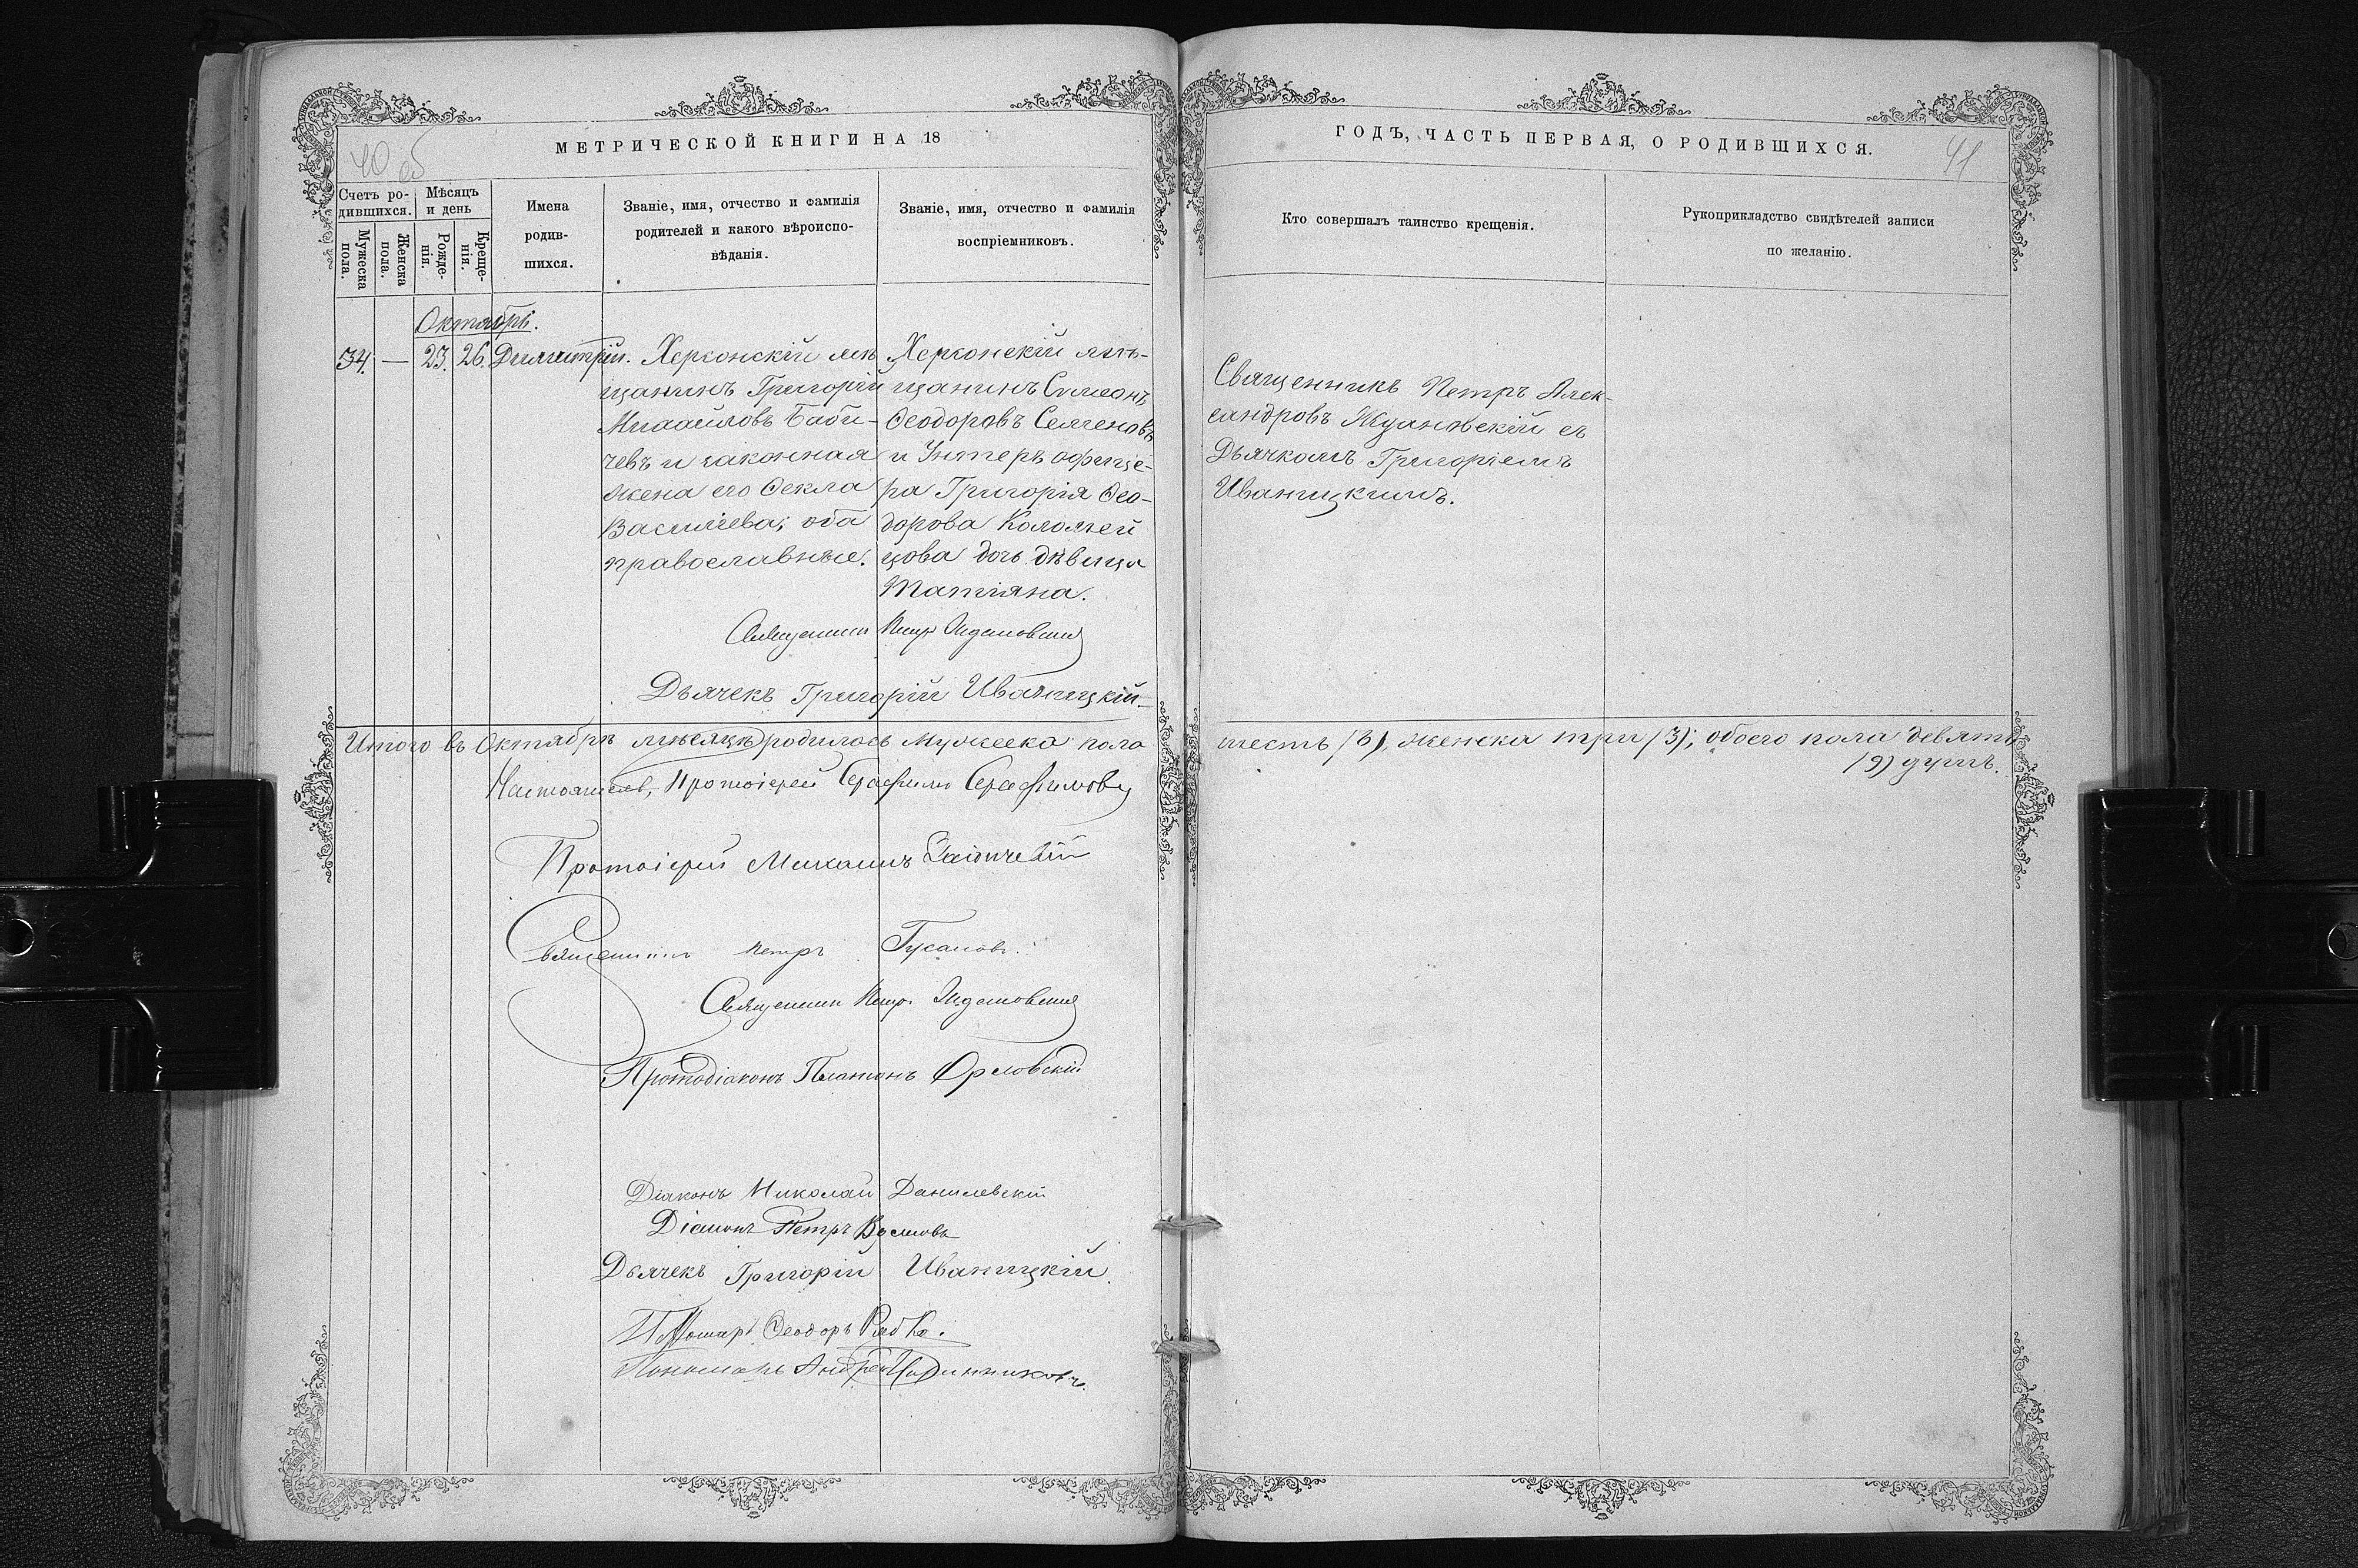 40 об
МЕТРИЧЕСКОЙ КНИГИ НА 18
Счетъ ро-
дившихся.
Мужеска
пола.
Женска
пола.
Мѣсяцъ
и день
Рожде-
нія.
Креще-
нія.
Имена
родив-
шихся.
Званіе, имя, отчество и фамилія
родителей и какого вѣроиспо-
вѣданія.
Званіе, имя, отчество и фамилія
воспріемниковъ.
Октябрь.
34. — 23. 26. Димитрій.
Херсонскій мѣ
щанинъ Григорій
Михаиловъ Баби-
чевъ и законная
жена его Ѳекла
Василіева; оба
православные.
Херсонскій мѣ-
щанинъ Симеонъ
Ѳеодоровъ Семеновъ
и Унтеръ офице-
ра Григорія Ѳео-
дорова Коломѣй
цова дочь дѣвица
Татіяна.
Священникъ Петръ
Дьячекъ Григорій Иваницкій.
Итого въ Октябрѣ мѣсяцѣ родилось Мужеска пола
Настоятель, Протоіерей Серафимъ Серафимовъ
Протоіерей Михаилъ
Священникъ Петръ Гусаковъ.
Священникъ Петръ
Протодіаконъ Платонъ Орловскій
Діаконъ Николай Данилевскій
Діаконъ Петръ
Дьячекъ Григорій Иваницкій.
Пономарь Ѳеодоръ
Пономарь Андрей
ГОДЪ, ЧАСТЬ ПЕРВАЯ, О РОДИВШИХСЯ.
41
Кто совершалъ таинство крещенія.
Рукоприкладство свидѣтелей записи
по желанію.
Священникъ Петръ Алек-
сандровъ съ
Дьячкомъ Григоріемъ
Иваницкимъ.
шесть (6), женска три (3); обоего пола девять
(9) душъ.